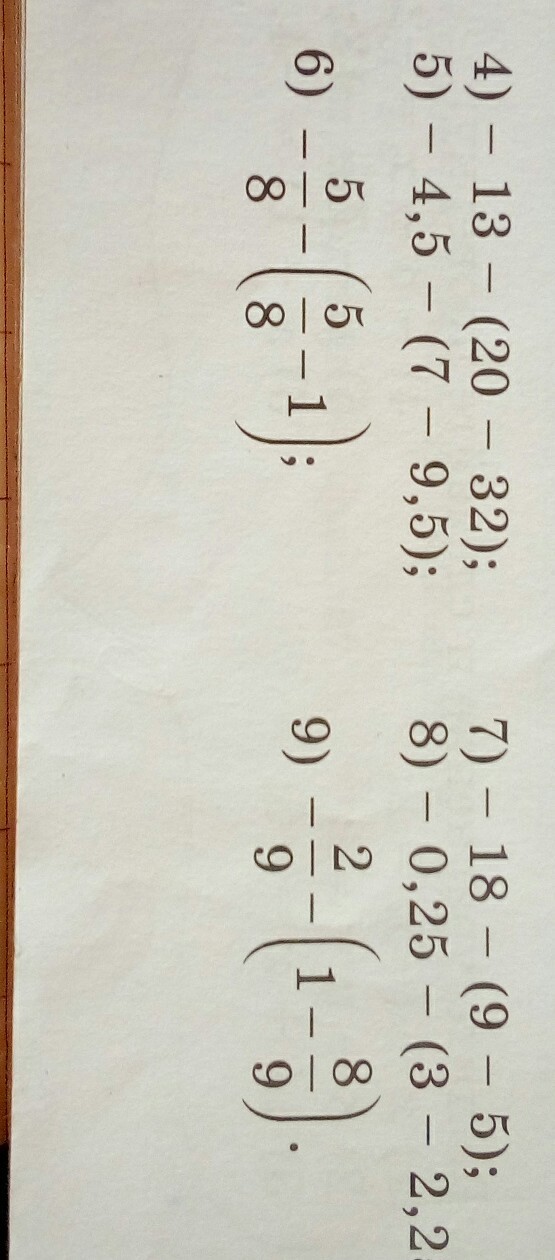 4) − 13 − (20 − 32);
5) − 4,5 − (7 − 9,5);
6) − 5/8 − (5/8 − 1);
7) − 18 − (9 − 5);
8) − 0,25 − (3 − 2,2
9) − 2/9 − (1 − 8/9).